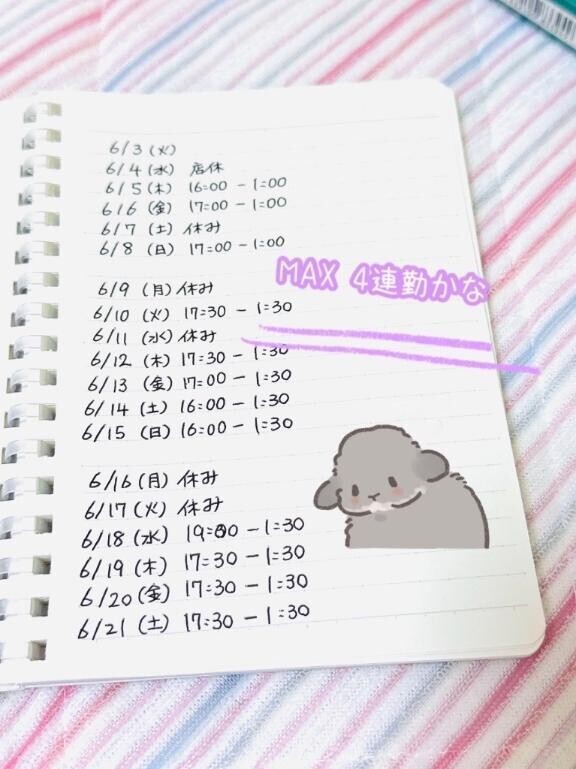 6/3(火)
6/4(水) 店休
6/5(木) 16:00 - 1:00
6/6(金) 17:00 - 1:00
6/7(土) 休み
6/8(日) 17:00 - 1:00
MAX 4連勤かな
6/9(月)休み
6/10(火) 17:30 - 1:30
6/11(水)休み
6/12(木) 17:30 - 1:30
6/13(金) 17:00 - 1:30
6/14(土) 16:00 - 1:30
6/15(日) 16:00 - 1:30
6/16(月) 休み
6/17(火) 休み
6/18(水) 19:00 - 1:30
6/19(木) 17:30 - 1:30
6/20(金) 17:30 - 1:30
6/21(土) 17:30 - 1:30